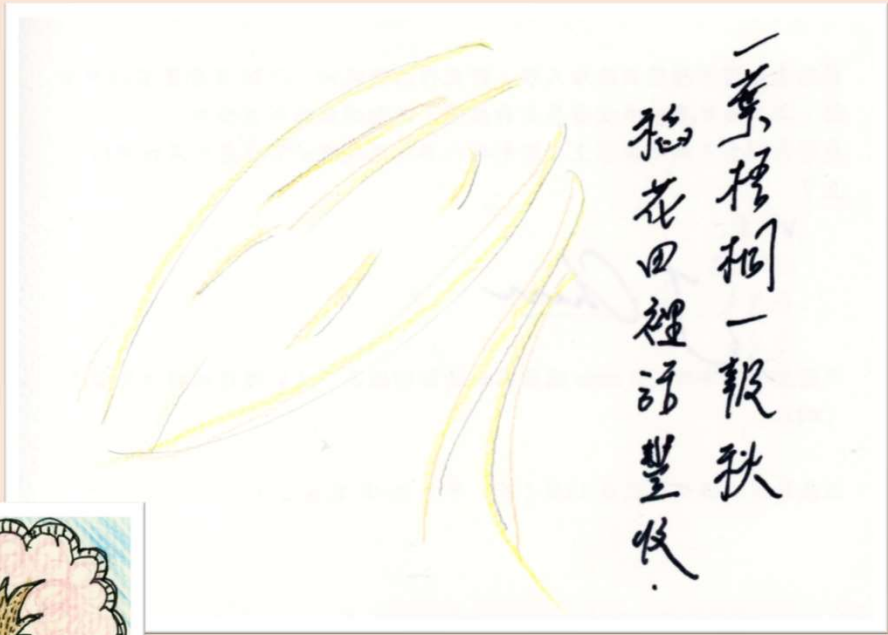 一葉梧桐一報秋
稻花田裡話豐收.